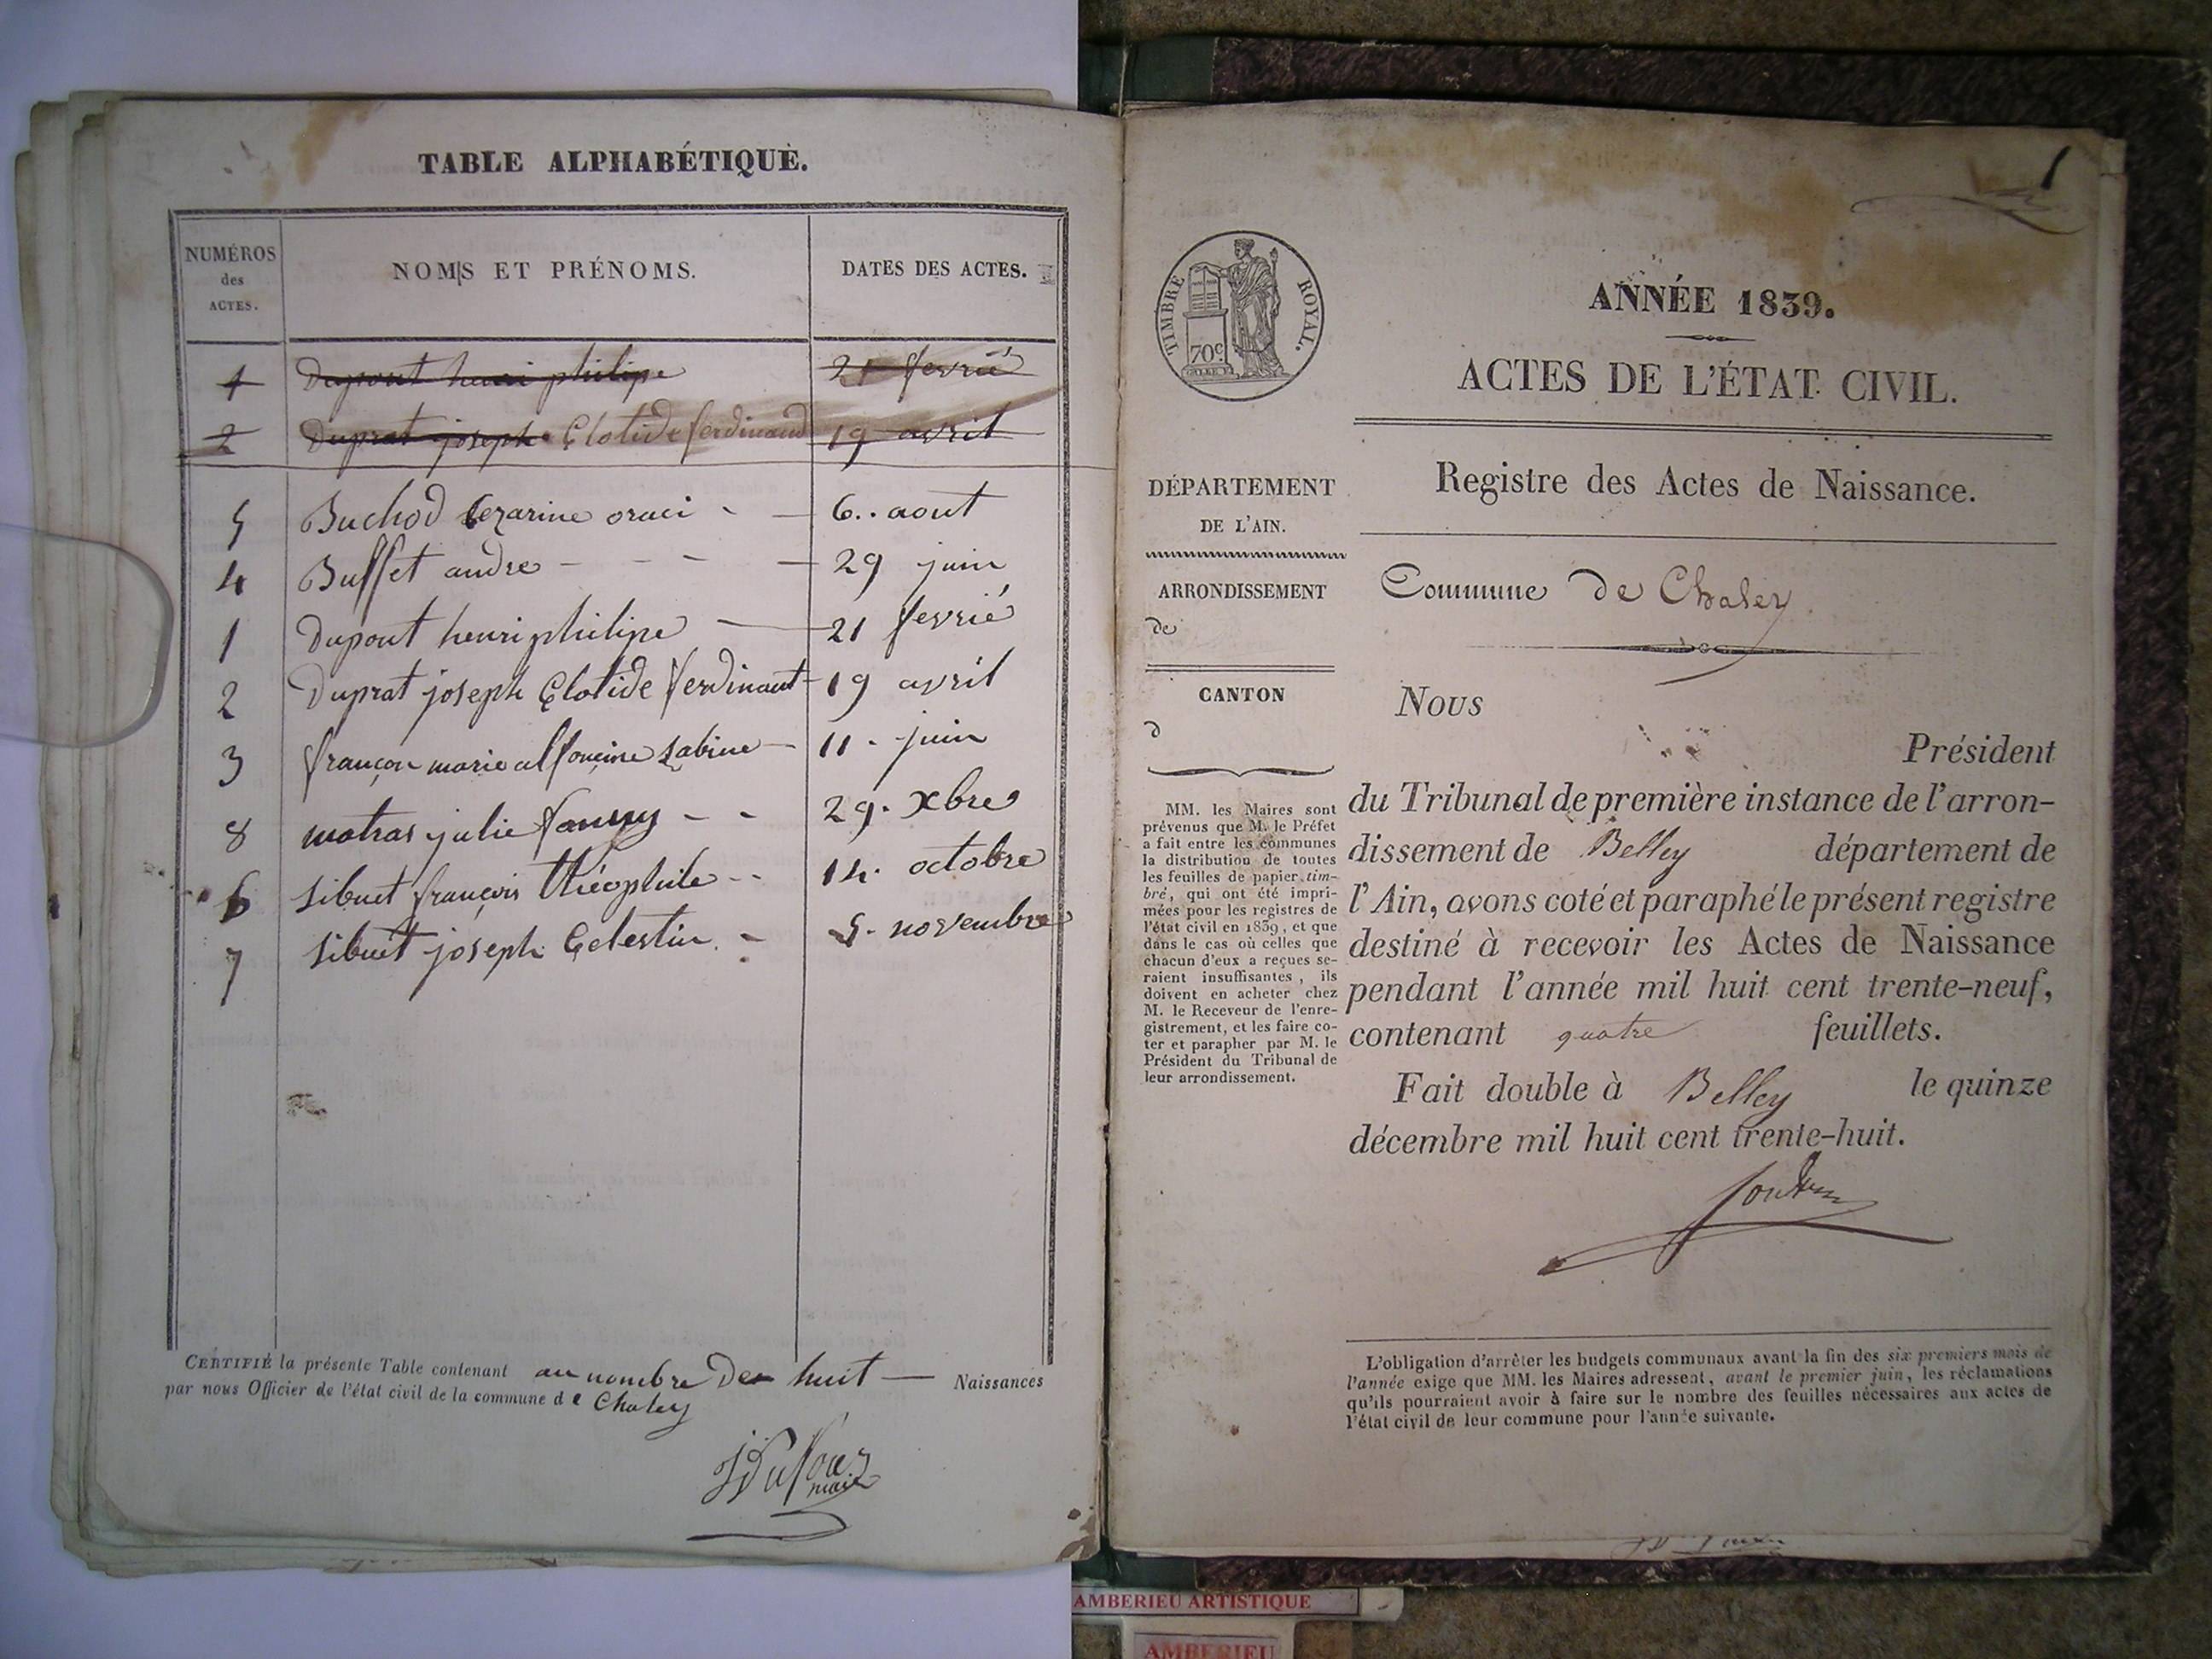 TABLE ALPHABÉTIQUE.
NUMÉROS
des
ACTES.
NOMS ET PRÉNOMS.
DATES DES ACTES.
1 Dupont henri philipe 21 fevrié
2 Duprat joseph Clotide ferdinand 19 avril
5 Buchod Cezarine oraci - 6.. aout
4 Buffet andre - - - 29 juin
1 Dupont henri philipe - 21 fevrié
2 Duprat joseph Clotide ferdinant 19 avril
3 françon marie alfoncine Sabine - 11 - juin
8 motras julie fanny - - 29. Xbre
6 Sibuet françois théophile - - 14. octobre
7 Sibuet joseph Celestin. - 5. novembre
CERTIFIÉ la présente Table contenant au nombre de huit — Naissances
par nous Officier de l'état civil de la commune de Chaley
maire
1
TIMBRE ROYAL.
70c.
ANNÉE 1839.
ACTES DE L'ÉTAT CIVIL.
Registre des Actes de Naissance.
DÉPARTEMENT
DE L'AIN.
ARRONDISSEMENT
de
CANTON
d
Commune de Chaley
MM. les Maires sont
prévenus que M. le Préfet
a fait entre les communes
la distribution de toutes
les feuilles de papier tim-
bré, qui ont été impri-
mées pour les registres de
l'état civil en 1839, et que
dans le cas où celles que
chacun d'eux a reçues se-
raient insuffisantes, ils
doivent en acheter chez
M. le Receveur de l'enre-
gistrement, et les faire co-
ter et parapher par M. le
Président du Tribunal de
leur arrondissement.
Nous
Président
du Tribunal de première instance de l'arron-
dissement de Belley département de
l'Ain, avons coté et paraphé le présent registre
destiné à recevoir les Actes de Naissance
pendant l'année mil huit cent trente-neuf,
contenant quatre feuillets.
Fait double à Belley le quinze
décembre mil huit cent trente-huit.
L'obligation d'arrêter les budgets communaux avant la fin des six premiers mois de
l'année exige que MM. les Maires adressent, avant le premier juin, les réclamations
qu'ils pourraient avoir à faire sur le nombre des feuilles nécessaires aux actes de
l'état civil de leur commune pour l'année suivante.
AMBERIEU ARTISTIQUE
AMBERIEU